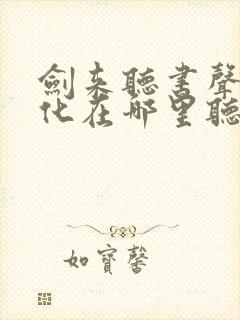 劍来聽書聲
化在哪里聽
如寶馨